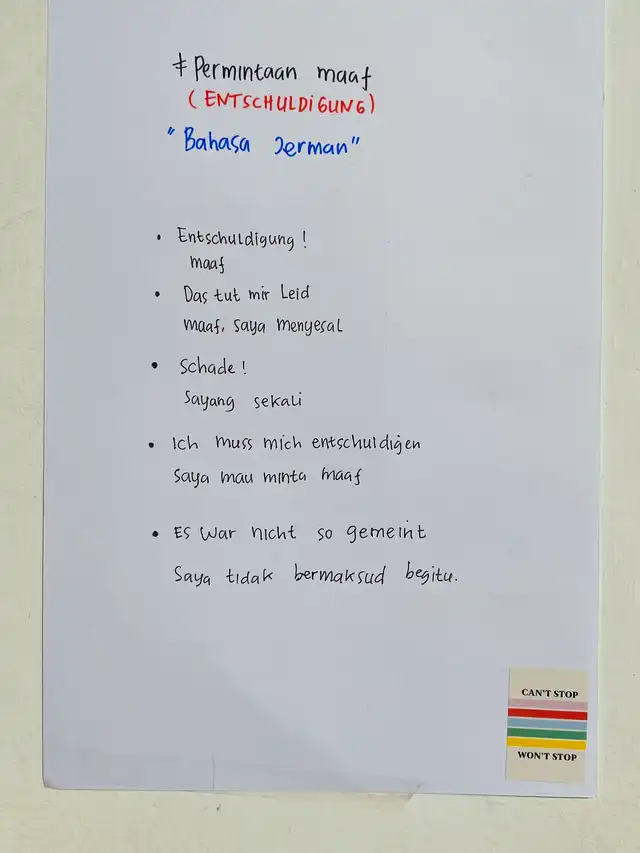 ‡ Permintaan maaf
(ENTSCHULDiGUNG)
"Bahasa Jerman"
• Entschuldigung !
maaf
• Das tut mir Leid
maaf, saya menyesal
• Schade !
Sayang sekali
• Ich muss mich entschuldigen
Saya mau minta maaf
• Es war nicht so gemeint
Saya tidak bermaksud begitu.
CAN'T STOP
WON'T STOP